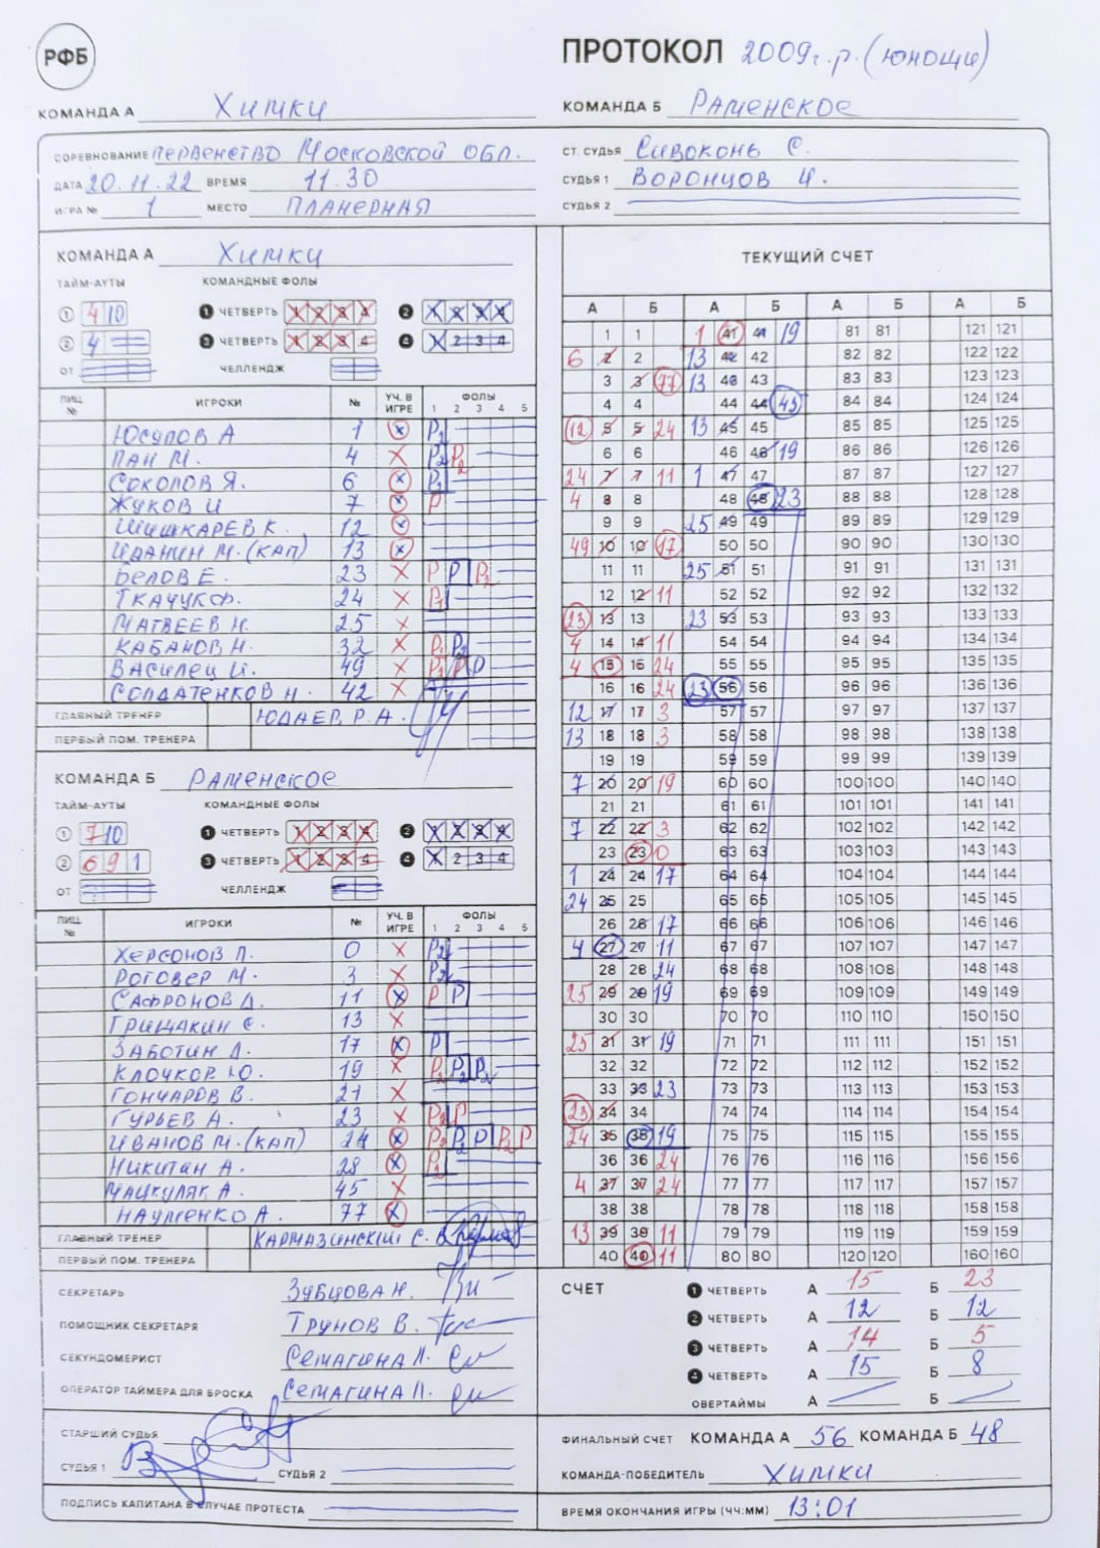 РФБ
ПРОТОКОЛ 2009г.р. (юноши)
КОМАНДА А Химки
КОМАНДА Б Раменское
СОРЕВНОВАНИЕ Первенство Московской обл.
ДАТА 20.11.22 ВРЕМЯ 11.30
ИГРА № 1 МЕСТО Планерная
СТ. СУДЬЯ Сивоконь С.
СУДЬЯ 1 Воронцов И.
СУДЬЯ 2
КОМАНДА А Химки
ТАЙМ-АУТЫ КОМАНДНЫЕ ФОЛЫ
1 4 10 1 ЧЕТВЕРТЬ 1 2 3 4 2 1 2 3 4
2 4 3 ЧЕТВЕРТЬ 1 2 3 4 4 1 2 3 4
ОТ ЧЕЛЛЕНДЖ
ЛИЦ. № ИГРОКИ № УЧ. В ИГРЕ ФОЛЫ 1 2 3 4 5
Юсупов А 1 X P2
Пан М. 4 X P2 P2
Соколов Я. 6 X P1
Жуков И 7 X P
Шишкарев К. 12 X
Иданин М. (кап) 13 X
Белов Е. 23 X P P P2
Ткачук Ф. 24 X P1
Матвеев Н. 25 X
Кабанов Н. 32 X P1 P2
Василец И. 49 X P1 P P
Солдатенков Н. 42 X
ГЛАВНЫЙ ТРЕНЕР Юдаев Р.А.
ПЕРВЫЙ ПОМ. ТРЕНЕРА
КОМАНДА Б Раменское
ТАЙМ-АУТЫ КОМАНДНЫЕ ФОЛЫ
1 7 10 1 ЧЕТВЕРТЬ 1 2 3 4 2 1 2 3 4
2 6 9 1 3 ЧЕТВЕРТЬ 1 2 3 4 4 1 2 3 4
ОТ ЧЕЛЛЕНДЖ
ЛИЦ. № ИГРОКИ № УЧ. В ИГРЕ ФОЛЫ 1 2 3 4 5
Херсонов П. 0 X P2
Роговер М. 3 X P2
Сафронов Д. 11 X P P
Грищакин С. 13 X
Заботин Д. 17 X P
Клочков Ю. 19 X P2 P2 P2
Гончаров В. 21 X
Гурьев А. 23 X P2 P
Иванов М. (кап) 24 X P2 P2 P P2 P
Никитин А. 28 X P2
Мацкуляк А. 45 X
Науменко А. 77 X
ГЛАВНЫЙ ТРЕНЕР Кармазинский С.В.
ПЕРВЫЙ ПОМ. ТРЕНЕРА
ТЕКУЩИЙ СЧЕТ
А Б А Б А Б А Б
1 1 1 41 41 19 81 81 121 121
6 2 2 13 42 42 82 82 122 122
3 3 77 13 43 43 83 83 123 123
4 4 44 44 45 84 84 124 124
12 5 5 24 13 45 45 85 85 125 125
6 6 46 46 19 86 86 126 126
24 7 7 11 1 47 47 87 87 127 127
4 8 8 48 48 23 88 88 128 128
9 9 25 49 49 89 89 129 129
49 10 10 17 50 50 90 90 130 130
11 11 25 51 51 91 91 131 131
12 12 11 52 52 92 92 132 132
23 13 13 23 53 53 93 93 133 133
4 14 14 11 54 54 94 94 134 134
4 15 15 24 55 55 95 95 135 135
16 16 24 23 56 56 96 96 136 136
12 17 17 3 57 57 97 97 137 137
13 18 18 3 58 58 98 98 138 138
19 19 59 59 99 99 139 139
7 20 20 19 60 60 100 100 140 140
21 21 61 61 101 101 141 141
7 22 22 3 62 62 102 102 142 142
23 23 0 63 63 103 103 143 143
1 24 24 17 64 64 104 104 144 144
24 25 25 65 65 105 105 145 145
26 26 17 66 66 106 106 146 146
4 27 27 11 67 67 107 107 147 147
28 28 24 68 68 108 108 148 148
25 29 29 19 69 69 109 109 149 149
30 30 70 70 110 110 150 150
25 31 31 19 71 71 111 111 151 151
32 32 72 72 112 112 152 152
33 33 23 73 73 113 113 153 153
23 34 34 74 74 114 114 154 154
24 35 35 19 75 75 115 115 155 155
36 36 24 76 76 116 116 156 156
4 37 37 24 77 77 117 117 157 157
38 38 78 78 118 118 158 158
13 39 39 11 79 79 119 119 159 159
40 40 11 80 80 120 120 160 160
СЕКРЕТАРЬ Зубцова Н.
ПОМОЩНИК СЕКРЕТАРЯ Трунов В.
СЕКУНДОМЕРИСТ Семагина П.
ОПЕРАТОР ТАЙМЕРА ДЛЯ БРОСКА Семагина П.
СТАРШИЙ СУДЬЯ
СУДЬЯ 1 СУДЬЯ 2
ПОДПИСЬ КАПИТАНА В СЛУЧАЕ ПРОТЕСТА
СЧЕТ 1 ЧЕТВЕРТЬ А 15 Б 23
2 ЧЕТВЕРТЬ А 12 Б 12
3 ЧЕТВЕРТЬ А 14 Б 5
4 ЧЕТВЕРТЬ А 15 Б 8
ОВЕРТАЙМЫ А Б
ФИНАЛЬНЫЙ СЧЕТ КОМАНДА А 56 КОМАНДА Б 48
КОМАНДА-ПОБЕДИТЕЛЬ Химки
ВРЕМЯ ОКОНЧАНИЯ ИГРЫ (ЧЧ:ММ) 13:01